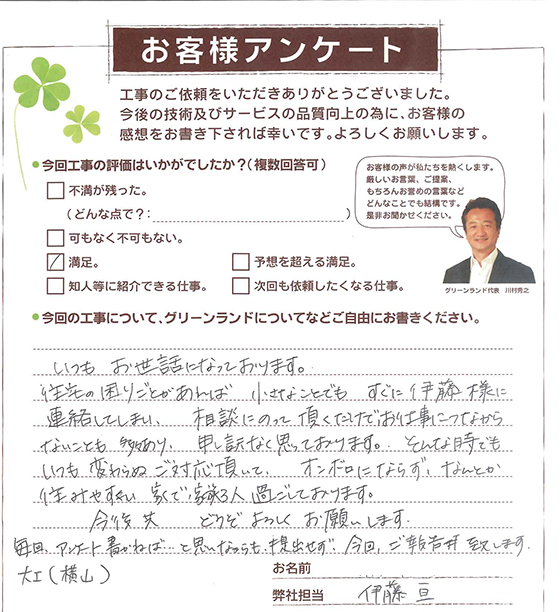 お客様アンケート
工事のご依頼をいただきありがとうございました。
今後の技術及びサービスの品質向上の為に、お客様の
感想をお書き下されば幸いです。よろしくお願いします。
●今回工事の評価はいかがでしたか?(複数回答可)
不満が残った。
(どんな点で?: )
可もなく不可もない。
満足。
予想を超える満足。
知人等に紹介できる仕事。
次回も依頼したくなる仕事。
お客様の声が私たちを熱くします。
厳しいお言葉、ご提案、
もちろんお誉めの言葉など
どんなことでも結構です。
是非お聞かせください。
グリーンランド代表 川村秀之
●今回の工事について、グリーンランドについてなどご自由にお書きください。
いつも お世話になっております。
住宅の困りごとがあれば 小さなことでも すぐに 伊藤様に
連絡してしまい、 相談にのって頂くだけでお仕事につながら
ないことも 多々あり、 申し訳なく思っております。 そんな時でも
いつも 変わらぬ ご対応頂いて、 オンボロにならず、なんとか
住みやすい 家で 家族3人 過ごしております。
今後共 どうぞ よろしく お願いします。
毎回、アンケート書かねば…と思いながらも、提出せず、今回、ご報告 致します。
大工(横山)
お名前
弊社担当 伊藤 亘